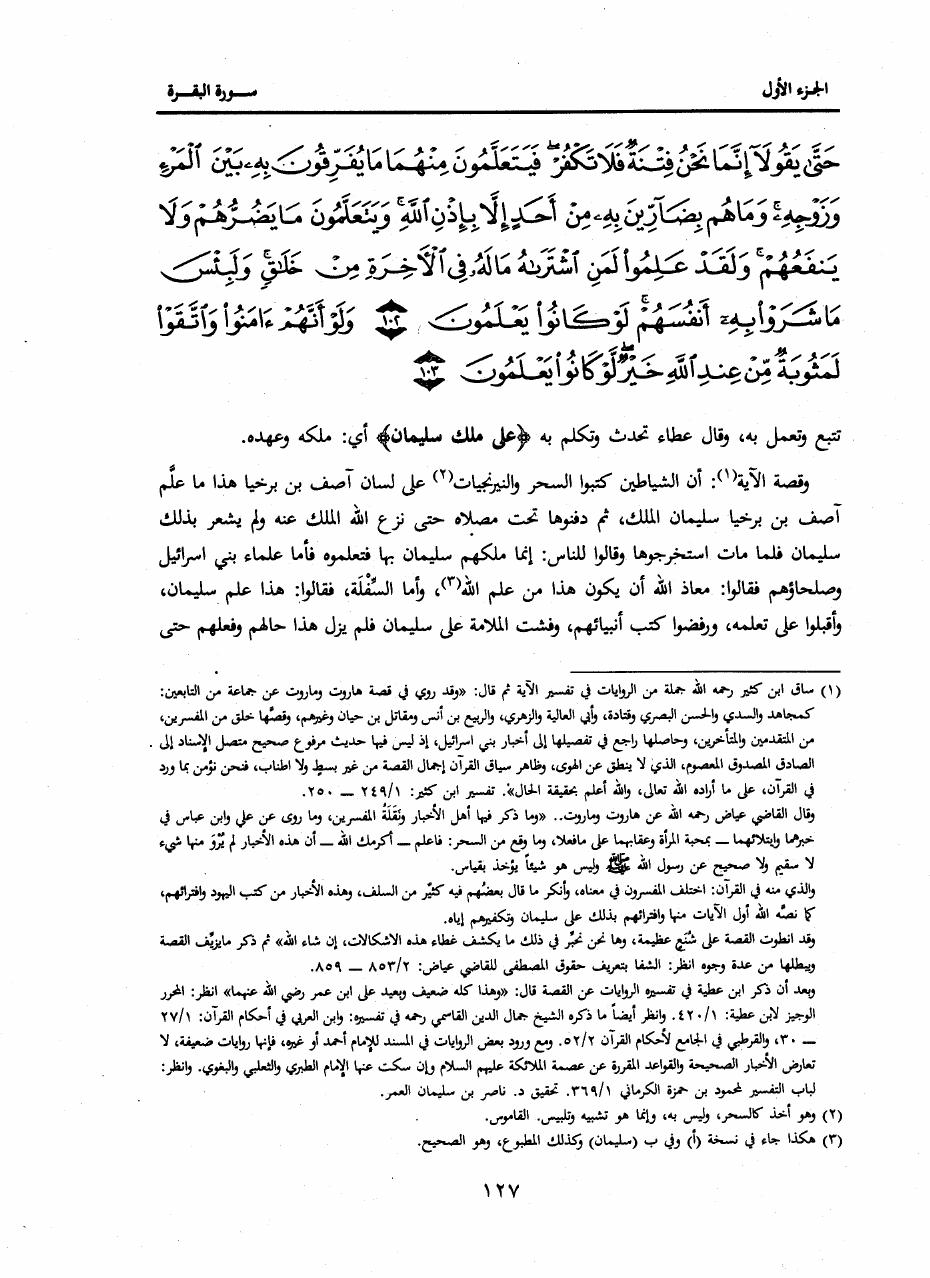 الجزء الأول
سورة البقرة
حَتَّىٰ يَقُولَآ إِنَّمَا نَحْنُ فِتْنَةٌ فَلَا تَكْفُرْ ۖ فَيَتَعَلَّمُونَ مِنْهُمَا مَا يُفَرِّقُونَ بِهِۦ بَيْنَ ٱلْمَرْءِ
وَزَوْجِهِۦ ۚ وَمَا هُم بِضَآرِّينَ بِهِۦ مِنْ أَحَدٍ إِلَّا بِإِذْنِ ٱللَّهِ ۚ وَيَتَعَلَّمُونَ مَا يَضُرُّهُمْ وَلَا
يَنفَعُهُمْ ۚ وَلَقَدْ عَلِمُوا۟ لَمَنِ ٱشْتَرَىٰهُ مَا لَهُۥ فِى ٱلْءَاخِرَةِ مِنْ خَلَٰقٍ ۚ وَلَبِئْسَ
مَا شَرَوْا۟ بِهِۦٓ أَنفُسَهُمْ ۚ لَوْ كَانُوا۟ يَعْلَمُونَ ١٠٢ وَلَوْ أَنَّهُمْ ءَامَنُوا۟ وَٱتَّقَوْا۟
لَمَثُوبَةٌ مِّنْ عِندِ ٱللَّهِ خَيْرٌ ۖ لَّوْ كَانُوا۟ يَعْلَمُونَ ١٠٣
تتبع وتعمل به، وقال عطاء تحدث وتكلم به ﴿على ملك سليمان﴾ أي: ملكه وعهده.
وقصة الآية(١): أن الشياطين كتبوا السحر والنيرنجيات(٢) على لسان آصف بن برخيا هذا ما علَّم
آصف بن برخيا سليمان الملك، ثم دفنوها تحت مصلاه حتى نزع الله الملك عنه ولم يشعر بذلك
سليمان فلما مات استخرجوها وقالوا للناس: إنما ملكهم سليمان بها فتعلموه فأما علماء بني اسرائيل
وصلحاؤهم فقالوا: معاذ الله أن يكون هذا من علم الله(٣)، وأما السِّفْلَة، فقالوا: هذا علم سليمان،
وأقبلوا على تعلمه، ورفضوا كتب أنبيائهم، وفشت الملامة على سليمان فلم يزل هذا حالهم وفعلهم حتى
(١) ساق ابن كثير رحمه الله جملة من الروايات في تفسير الآية ثم قال: «وقد روي في قصة هاروت وماروت عن جماعة من التابعين:
كمجاهد والسدي والحسن البصري وقتادة، وأبي العالية والزهري، والربيع بن أنس ومقاتل بن حيان وغيرهم، وقصَّها خلق من المفسرين،
من المتقدمين والمتأخرين، وحاصلها راجع في تفصيلها إلى أخبار بني اسرائيل، إذ ليس فيها حديث مرفوع صحيح متصل الإسناد إلى
الصادق المصدوق المعصوم، الذي لا ينطق عن الهوى، وظاهر سياق القرآن إجمال القصة من غير بسطٍ ولا اطناب، فنحن نؤمن بما ورد
في القرآن، على ما أراده الله تعالى، والله أعلم بحقيقة الحال». تفسير ابن كثير: ٢٤٩/١ — ٢٥٠.
وقال القاضي عياض رحمه الله عن هاروت وماروت.. «وما ذكر فيها أهل الأخبار ونَقَلَةُ المفسرين، وما روى عن علي وابن عباس في
خبرهما وابتلائهما — بمحبة المرأة وعقابهما على مافعلا، وما وقع من السحر: فاعلم — أكرمك الله — أن هذه الأخبار لم يُرْوَ منها شيء
لا سقيم ولا صحيح عن رسول الله ﷺ وليس هو شيئاً يؤخذ بقياس.
والذي منه في القرآن: اختلف المفسرون في معناه، وأنكر ما قال بعضُهم فيه كثيٌر من السلف، وهذه الأخبار من كتب اليهود وافترائهم،
كما نصَّه الله أول الآيات منها وافترائهم بذلك على سليمان وتكفيرهم إياه.
وقد انطوت القصة على شُنَعٍ عظيمة، وها نحن نحبِّر في ذلك ما يكشف غطاء هذه الاشكالات، إن شاء الله» ثم ذكر مايزيِّف القصة
ويبطلها من عدة وجوه انظر: الشفا بتعريف حقوق المصطفى للقاضي عياض: ٨٥٣/٢ — ٨٥٩.
وبعد أن ذكر ابن عطية في تفسيره الروايات عن القصة قال: «وهذا كله ضعيف وبعيد على ابن عمر رضي الله عنهما» انظر: المحرر
الوجيز لابن عطية: ٤٢٠/١. وانظر أيضاً ما ذكره الشيخ جمال الدين القاسمي رحمه في تفسيره: وابن العربي في أحكام القرآن: ٢٧/١
— ٣٠، والقرطبي في الجامع لأحكام القرآن ٥٢/٢. ومع ورود بعض الروايات في المسند للإمام أحمد أو غيره، فإنها روايات ضعيفة، لا
تعارض الأخبار الصحيحة والقواعد المقررة عن عصمة الملائكة عليهم السلام وإن سكت عنها الإمام الطبري والثعلبي والبغوي. وانظر:
لباب التفسير لمحمود بن حمزة الكرماني ٣٦٩/١. تحقيق د. ناصر بن سليمان العمر.
(٢) وهو أخذ كالسحر، وليس به، وإنما هو تشبيه وتلبيس. القاموس.
(٣) هكذا جاء في نسخة (أ) وفي ب (سليمان) وكذلك المطبوع، وهو الصحيح.
١٢٧